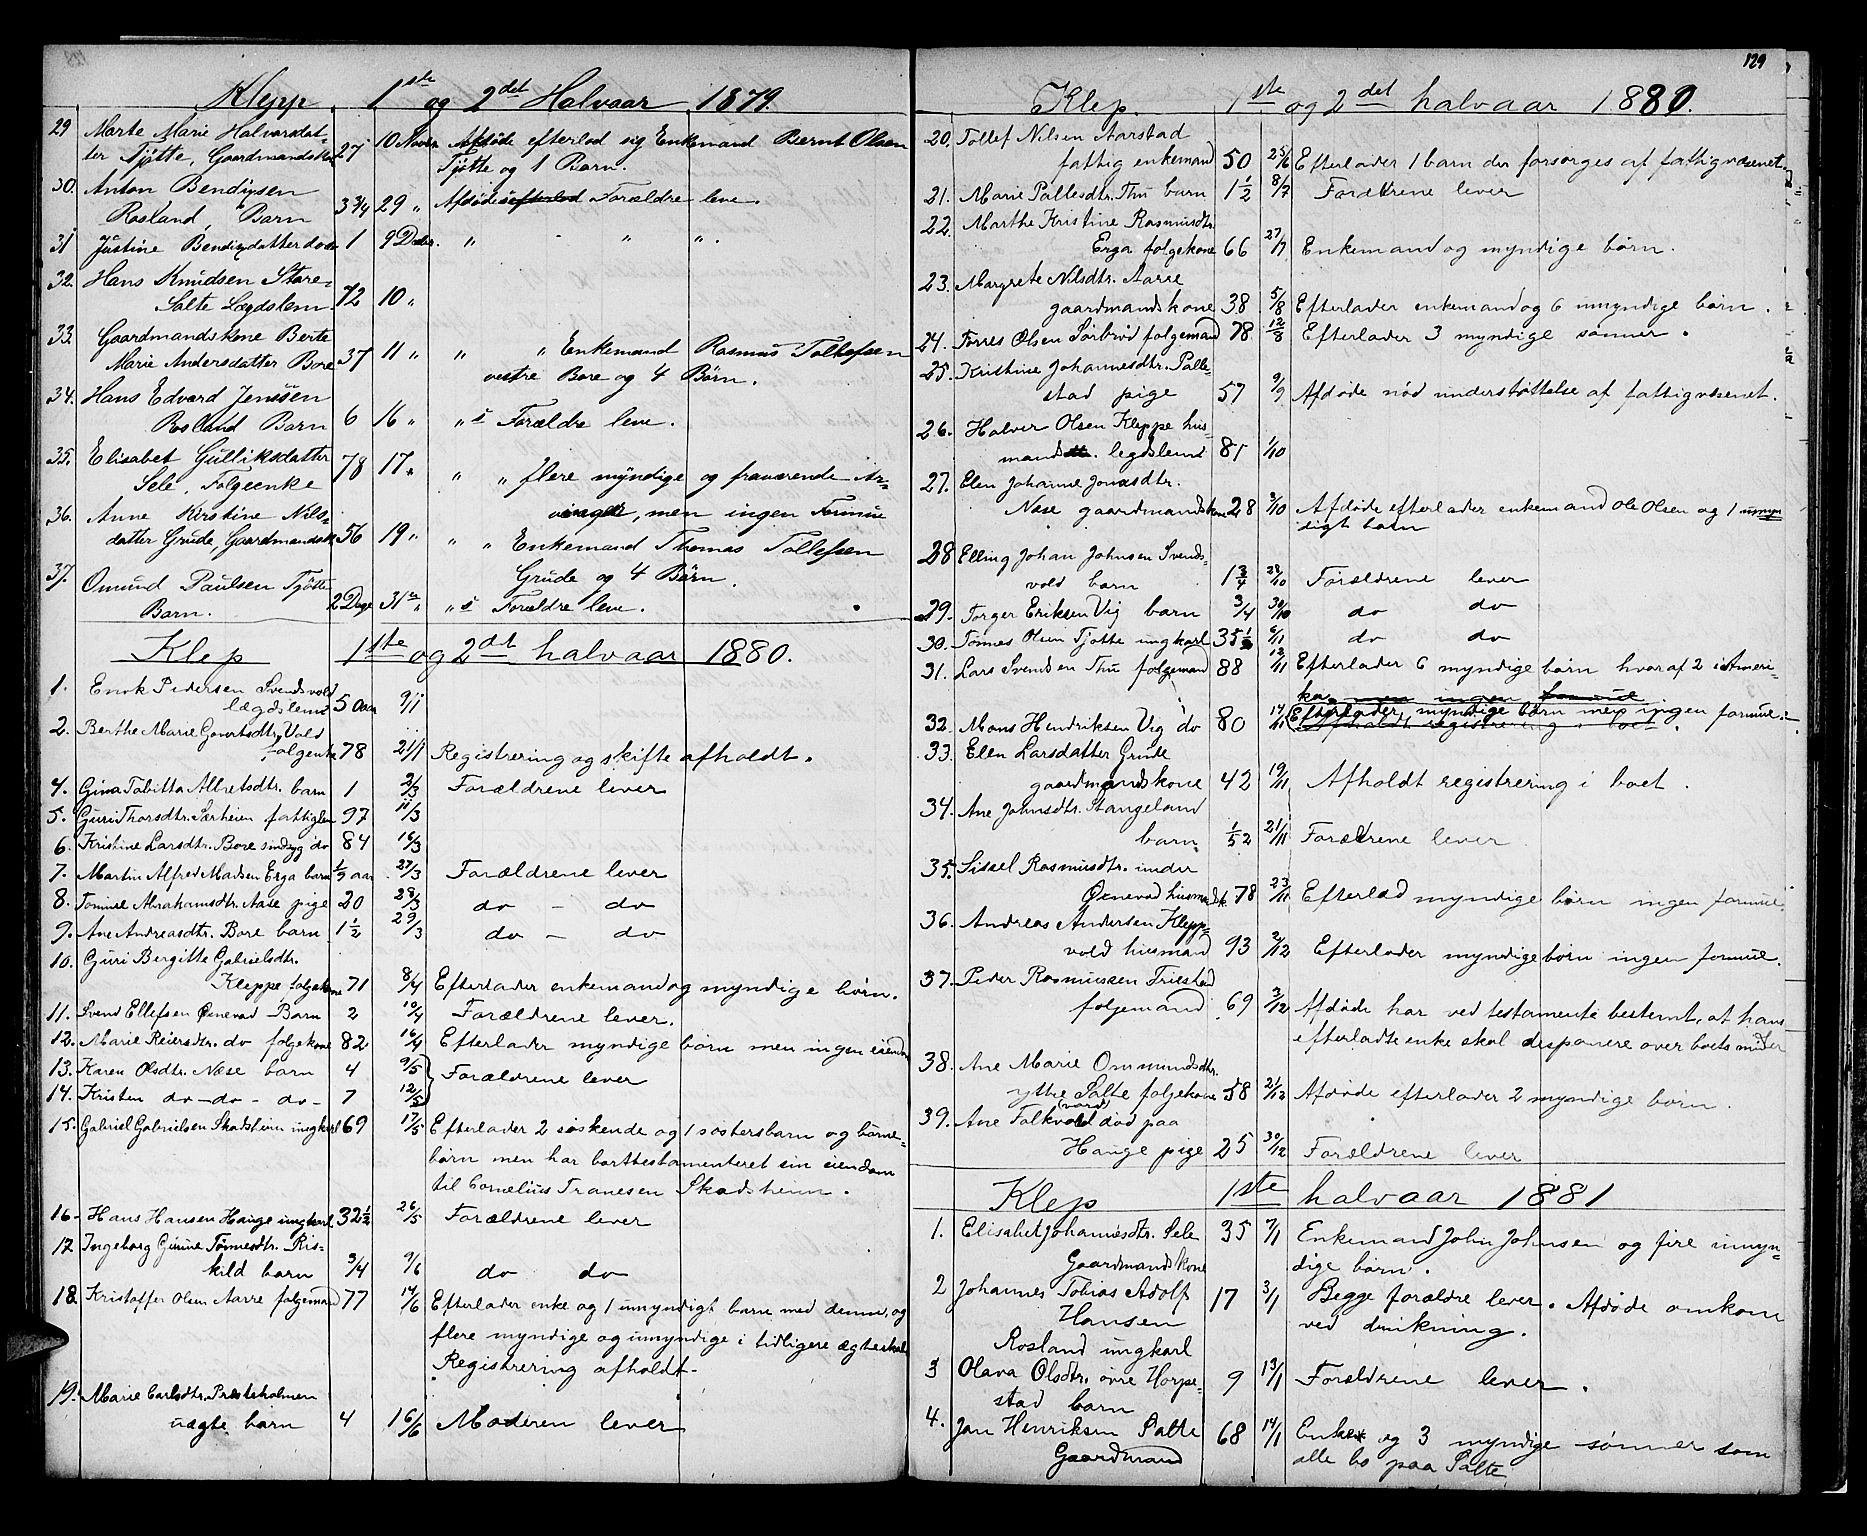 Klepp 1ste og 2det Halvaar 1879.
29 Marte Marie Halvorsdat-
ter Tjøtte, Gaardmandsk. 27 10 Novbr. Afdøde efterlod sig Enkemand Bernt Olsen
Tjøtte og 1 Barn.
30. Anton Bendixsen
Rosland, Barn 3 3/4 29 " Afdødes efterlod Forældre leve.
31 Justine Bendixdatter do do 1 9 Decbr. " - " " .
32. Hans Knudsen Store-
Salte Lægdslem 72 10 "
33. Gaardmandskone Berte
Marie Andersdatter Bore 37 11 " " " Enkemand Rasmus Tollefsen
vestre Bore og 4 Børn.
34. Hans Edvard Jenssen
Rosland Barn 6 16 " " s Forældre leve.
35. Elisabet Gulliksdatter
Sele, Folgeenke 78 17 " " " flere myndige og fraværende Ar-
vinger, men ingen Formue
36. Anne Kirstine Nils-
datter Grude, Gaardmandsk. 56 19 " " " Enkemand Thomas Tollefsen
Grude og 4 Børn.
37. Omund Paulsen Tjøtte
Barn. 2 Dage 31te " " s Forældre leve.
Klep 1ste og 2det halvaar 1880.
1. Enok Pedersen Svendsvold
lægdslemt 50 aar 9/1
2. Berthe Marie Govertsdtr. Vold
folgenke 78 21/1 Registrering og skifte afholdt.
4. Gina Tabitta Albretsdtr. barn 1 2/3 Forældrene lever
5. Guri Thorsdtr. Særheim fattiglem 97 11/3
6. Kristine Larsdtr. Bore sindsyg do 84 16/3
7. Martin Alfred Madsen Erga barn 1/2 aar 27/3 Forældrene lever
8. Tomine Abrahamsdtr. Aase pige 20 28/3 do - do
9. Ane Andreasdtr. Bore barn 1 1/2 29/3 do - do
10. Guri Bergitte Gabrielsdtr.
Kleppe folgekone 71 8/4 Efterlader enkemand og myndige børn.
11. Svend Ellefsen Øxnevad Barn 2 10/4 Forældrene lever.
12. Marie Reiersdtr. do folgekone 82 16/4 Efterlader myndige børn men ingen eiendom
13. Karen Olsdtr. Næse barn 4 9/5 Forældrene lever
14. Kristen do - do - do - 7 12/5
15. Gabriel Gabrielsen Skadsheim ungkarl 69 17/5 Efterlader 2 søskende og 1 søstersbarn og børne-
børn men har borttestamenteret sin eiendom
til Cornelius Tranesen Skadsheim.
16. Hans Hansen Hauge ungkarl 32 1/2 26/5 Forældrene lever
17 Ingeborg Gurine Tønnesdtr. Ris-
kild barn 3/4 9/6 do do
18. Kristoffer Olsen Aarre folgemand 77 14/6 Efterlader enke og 1 umyndigt barn med denne, og
flere myndige og umyndige i tidligere ægteskab
Registrering afholdt.
19. Marie Carlsdtr. Prestholmen
uægte barn 4 16/6 Moderen lever
129
Klep. 1ste og 2det halvaar 1880.
20. Tollef Nilsen Aarstad
fattig enkemand 50 25/6 Efterlader 1 barn der forsørges af fattigvæsenet.
21. Marie Pallesdtr. Thu barn 1 1/2 8/7 Forældrene lever
22. Marthe Kristine Rasmusdtr.
Erga folgekone 66 27/7 Enkemand og myndige børn.
23. Margrete Nilsdtr. Aarre
gaardmandskone 38 5/8 Efterlader enkemand og 6 umyndige børn.
24. Torres Olsen Sørbrød folgemand 78 12/8 Efterlader 3 myndige sønner.
25. Kristine Johannesdtr. Palle-
stad pige 57 9/9 Afdøde nød understøttelse af fattigvæsenet.
26. Halvor Olsen Kleppe hus-
mand legdslemt 81 1/10
27. Elen Johanne Jonasdtr.
Næse gaardmandskone 28 3/10 Afdøde efterlader enkemand Ole Olsen og 1 umyn
digt barn
28 Elling Johan Johnsen Svends-
vold barn 1 3/4 28/10 Forældrene lever
29. Torger Eriksen Vig barn 3/4 30/10 do do
30. Tønnes Olsen Tjøtte ungkarl 35 1/2 6/11 do do
31. Lars Svendsen Thu folgemand 88 12/11 Efterlader 6 myndige børn hvoraf 2 i Ameri-
ka men ingen formue
32. Mons Hendriksen Vig do 80 14/11 Efterlader myndige børn men ingen formue.
33. Elen Larsdatter Grude
gaardmandskone 42 19/11 Afholdt registrering i boet.
34. Ane Johnsdtr. Stangeland
barn 1/52 21/11 Forældrene lever
35. Sissel Rasmusdtr. under
Øxnevad husmandsk. 78 23/11 Efterlod myndige børn ingen formue
36. Andreas Andersen Klepp-
vold husmand 93 2/12 Efterlader myndige børn ingen formue.
37. Peder Rasmussen Friestad
folgemand 69 3/12 Afdøde har ved testamente bestemt, at hans
efterladte enke skal disponere over boets midler
38. Ane Marie Ommundsdtr.
ytre Salte folgekone 58 21/12 Afdøde efterlader 2 myndige børn.
39. Ane Folkvord død paa
(vord)
Hauge pige 25 30/12 Forældrene lever
Klep 1ste halvaar 1881
1. Elisabet Johannesdtr. Sele 35 7/1 Enkemand John Johnsen og fire umyn-
Gaardmandskone dige børn.
2 Johannes Tobias Adolf 17 3/1 Begge forældre lever. Afdøde omkom
Hansen ved drukning.
Rosland ungkarl
3 Olava Olsdtr. øvre Horpe- 9 13/1 Forældrene lever.
stad barn
4. Jan Henriksen Salte 68 14/1 Enke og 3 myndige sønner som
Gaardmand alle bo paa Salte